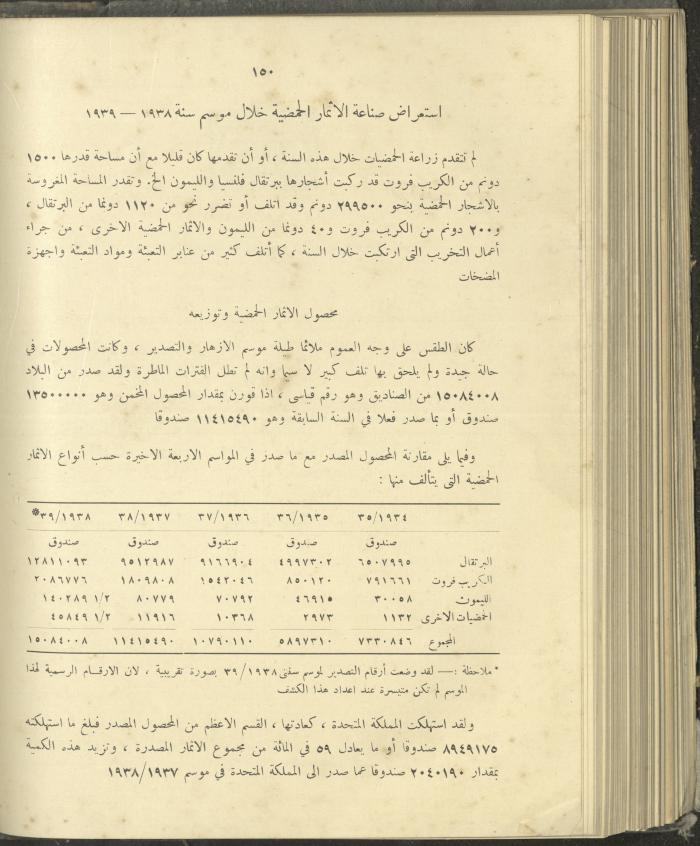 ١٥٠
استعراض صناعة الاثمار الحمضية خلال موسم سنة ١٩٣٨ — ١٩٣٩
لم تتقدم زراعة الحمضيات خلال هذه السنة ، أو أن تقدمها كان قليلا مع أن مساحة قدرها ١٥٠٠
دونم من الكريب فروت قد ركبت أشجارها ببرتقال فلنسيا والليمون الخ. وتقدر المساحة المغروسة
بالاشجار الحمضية بنحو ٢٩٩٥٠٠ دونم وقد اتلف أو تضرر نحو من ١١٢٠ دونما من البرتقال ،
و٢٠٠ دونم من الكريب فروت و٤٠ دونما من الليمون والاثمار الحمضية الاخرى ، من جراء
أعمال التخريب التى ارتكبت خلال السنة ، كما أتلف كثير من عنابر التعبئة ومواد التعبئة واجهزة
المضخات
محصول الاثمار الحمضية وتوزيعه
كان الطقس على وجه العموم ملائما طيلة موسم الازهار والتصدير ، وكانت المحصولات في
حالة جيدة ولم يلحق بها تلف كبير لا سيما وانه لم تطل الفترات الماطرة ولقد صدر من البلاد
١٥٠٨٤٠٠٨ من الصناديق وهو رقم قياسى ، اذا قورن بمقدار المحصول المخمن وهو ١٣٥٠٠٠٠٠
صندوق أو بما صدر فعلا في السنة السابقة وهو ١١٤١٥٤٩٠ صندوقا
وفيما يلى مقارنة المحصول المصدر مع ما صدر في المواسم الاربعة الاخيرة حسب أنواع الاثمار
الحمضية التى يتألف منها :
٣٥/١٩٣٤ ٣٦/١٩٣٥ ٣٧/١٩٣٦ ٣٨/١٩٣٧ ٣٩/١٩٣٨*
صندوق صندوق صندوق صندوق صندوق
البرتقال ٦٥٠٧٩٩٥ ٤٩٩٧٣٠٢ ٩١٦٦٩٠٤ ٩٥١٢٩٨٧ ١٢٨١١٠٩٣
الكريب فروت ٧٩١٦٦١ ٨٥٠١٢٠ ١٥٤٢٠٤٦ ١٨٠٩٨٠٨ ٢٠٨٦٧٧٦
الليمون ٣٠٠٥٨ ٤٦٩١٥ ٧٠٧٩٢ ٨٠٧٧٩ ١٤٠٢٨٩ ١/٢
الحمضيات الاخرى ١١٣٢ ٢٩٧٣ ١٠٣٦٨ ١١٩١٦ ٤٥٨٤٩ ١/٢
المجموع ٧٣٣٠٨٤٦ ٥٨٩٧٣١٠ ١٠٧٩٠١١٠ ١١٤١٥٤٩٠ ١٥٠٨٤٠٠٨
* ملاحظة :— لقد وضعت أرقام التصدير لموسم سنتى ٣٩/١٩٣٨ بصورة تقريبية ، لان الارقام الرسمية لهذا
الموسم لم تكن متيسرة عند اعداد هذا الكشف
ولقد استهلكت المملكة المتحدة ، كعادتها ، القسم الاعظم من المحصول المصدر فبلغ ما استهلكته
٨٩٤٩١٧٥ صندوقا أو ما يعادل ٥٩ في المائة من مجموع الاثمار المصدرة ، وتزيد هذه الكمية
بمقدار ٢٠٤٠١٩٠ صندوقا عما صدر الى المملكة المتحدة في موسم ١٩٣٨/١٩٣٧